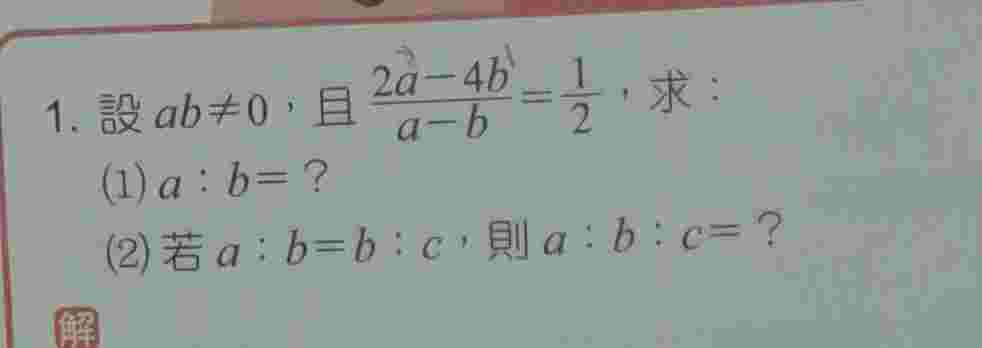 1. 設 ab≠0，且 \frac{2a-4b}{a-b}=\frac{1}{2}，求：
(1) a：b=？
(2) 若 a：b=b：c，則 a：b：c=？
解